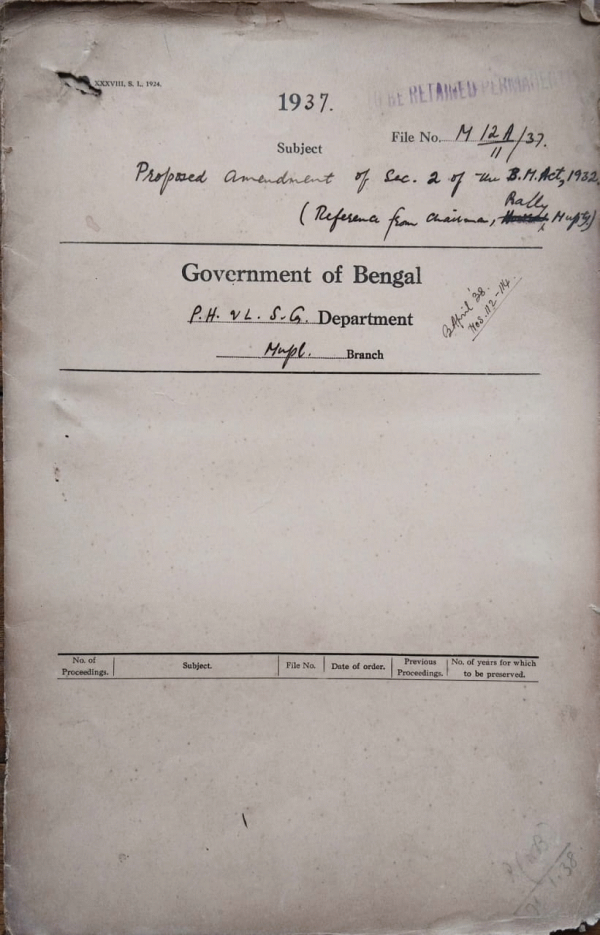 XXXVIII, S. L., 1924.
TO BE RETAINED PERMANENTLY
1937.
File No. M 12A/11/37.
Subject
Proposed amendment of Sec. 2 of the B.M. Act, 1932.
(Reference from Chairman, Bally Mupty)
Government of Bengal
P.H. & L. S-G. Department
Mupl. Branch
April '38.
Nos. 112-114
No. of Proceedings. Subject. File No. Date of order. Previous Proceedings. No. of years for which to be preserved.